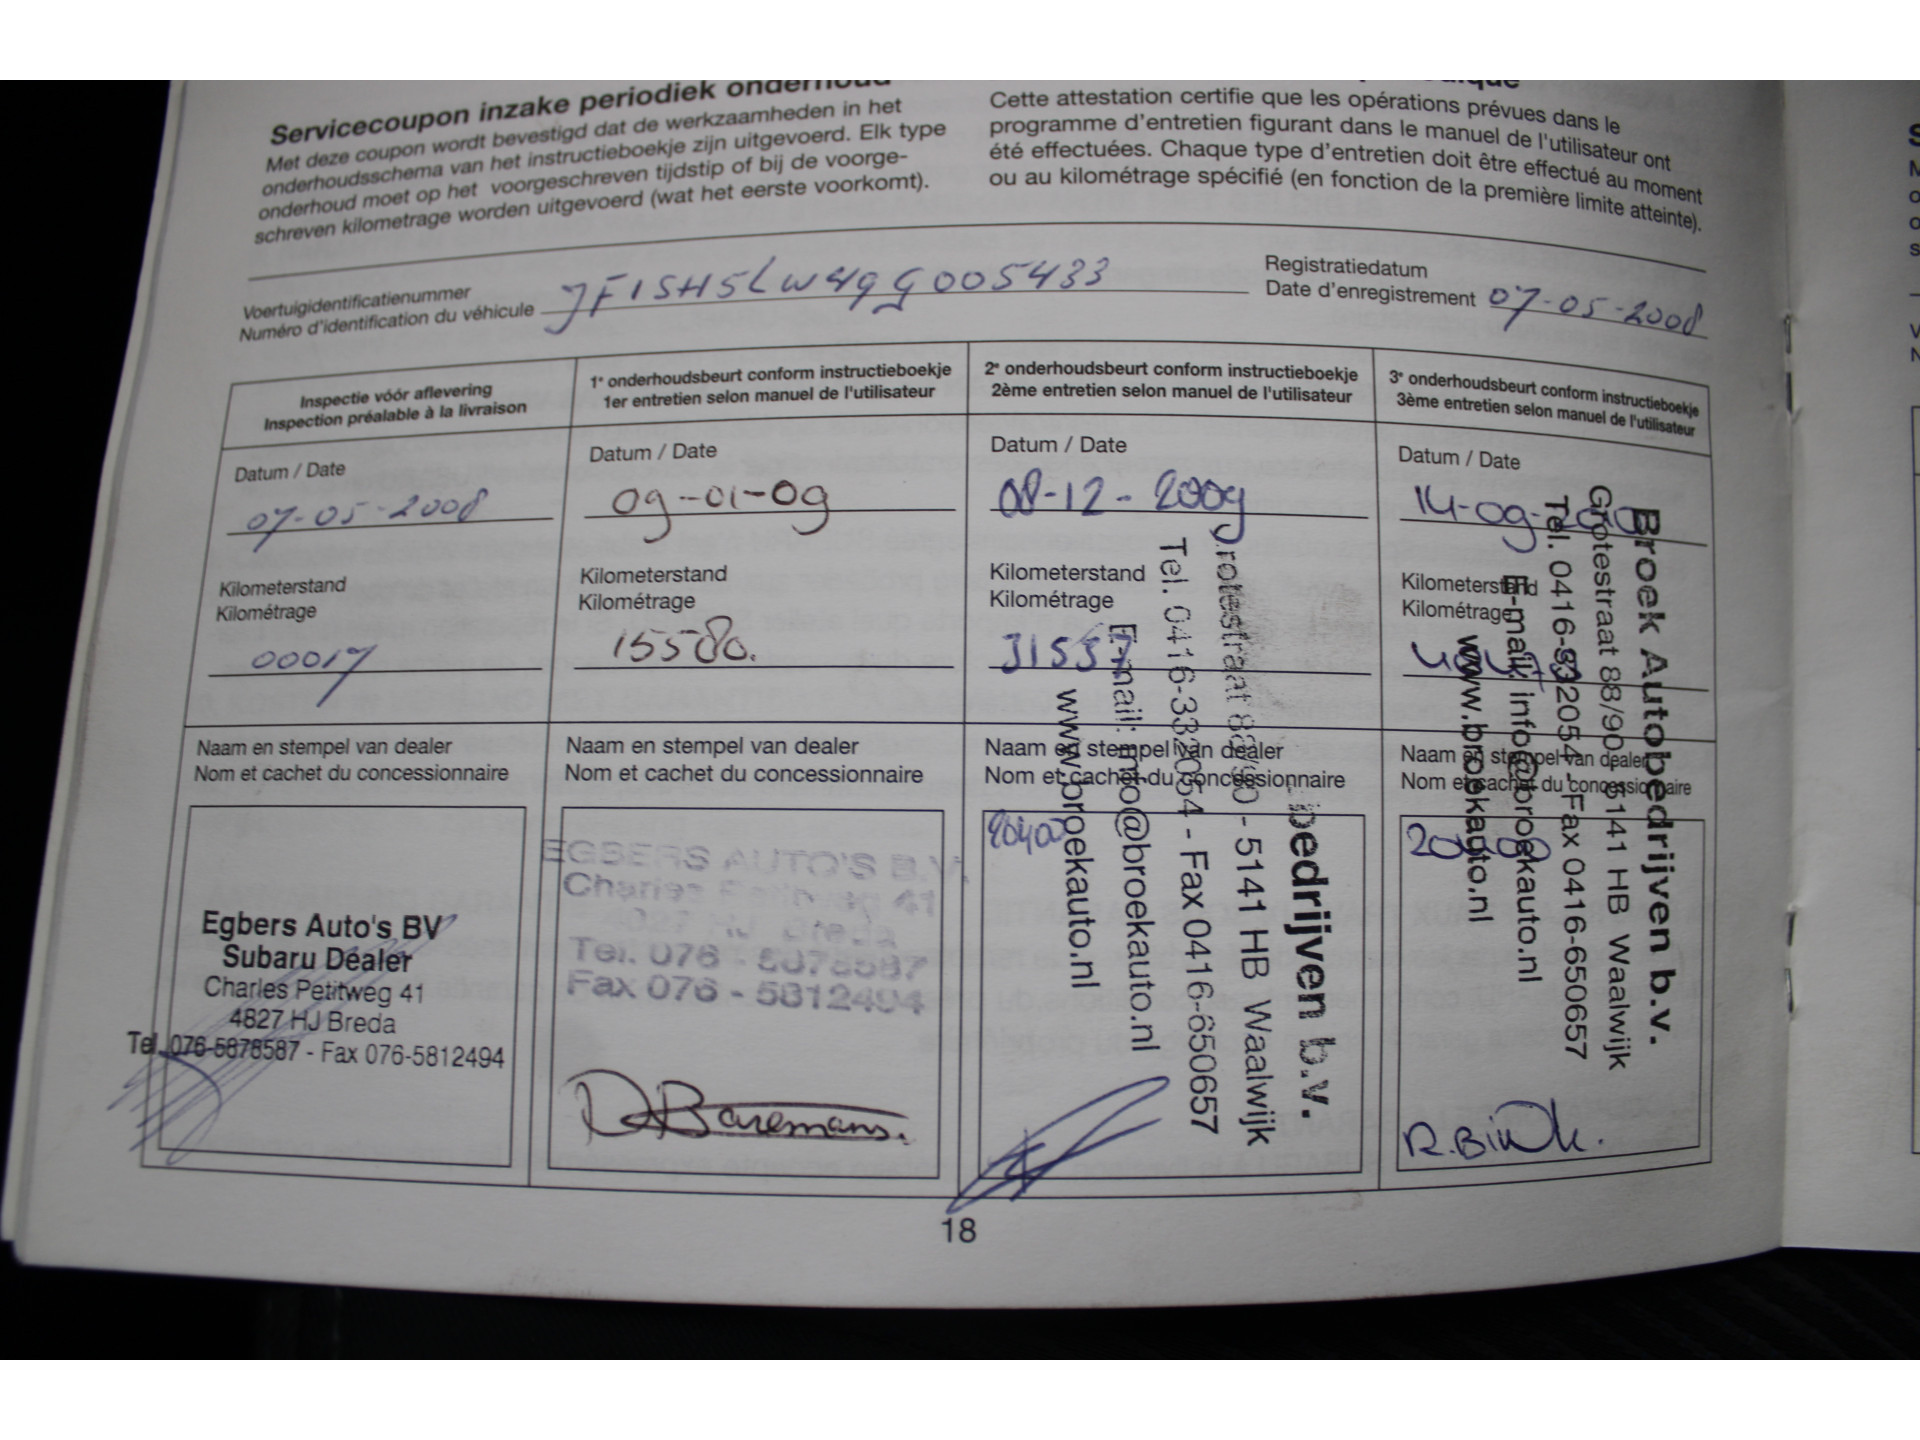 Servicecoupon inzake periodiek onderhoud
Met deze coupon wordt bevestigd dat de werkzaamheden in het
onderhoudsschema van het instructieboekje zijn uitgevoerd. Elk type
onderhoud moet op het voorgeschreven tijdstip of bij de voorge-
schreven kilometrage worden uitgevoerd (wat het eerste voorkomt).
Cette attestation certifie que les opérations prévues dans le
programme d'entretien figurant dans le manuel de l'utilisateur ont
été effectuées. Chaque type d'entretien doit être effectué au moment
ou au kilométrage spécifié (en fonction de la première limite atteinte).
Voertuigidentificatienummer
Numéro d'identification du véhicule JF1SH5LW49G005433
Registratiedatum
Date d'enregistrement 07-05-2008
Inspectie vóór aflevering
Inspection préalable à la livraison
Datum / Date
07-05-2008
Kilometerstand
Kilométrage
00017
Naam en stempel van dealer
Nom et cachet du concessionnaire
Egbers Auto's BV
Subaru Dealer
Charles Petitweg 41
4827 HJ Breda
Tel. 076-5878587 - Fax 076-5812494
1e onderhoudsbeurt conform instructieboekje
1er entretien selon manuel de l'utilisateur
Datum / Date
09-01-09
Kilometerstand
Kilométrage
15580.
Naam en stempel van dealer
Nom et cachet du concessionnaire
EGBERS AUTO'S B.V.
Charles Petitweg 41
4827 HJ Breda
Tel. 076 - 5878587
Fax 076 - 5812494
D Baremans.
2e onderhoudsbeurt conform instructieboekje
2ème entretien selon manuel de l'utilisateur
Datum / Date
08-12-2009
Kilometerstand
Kilométrage
31537
Naam en stempel van dealer
Nom et cachet du concessionnaire
bedrijven b.v.
Grotestraat 88/90 - 5141 HB Waalwijk
Tel. 0416-332054 - Fax 0416-650657
E-mail: info@broekauto.nl
www.broekauto.nl
3e onderhoudsbeurt conform instructieboekje
3ème entretien selon manuel de l'utilisateur
Datum / Date
14-09-2010
Kilometerstand
Kilométrage
Naam en stempel van dealer
Nom et cachet du concessionnaire
Broek Autobedrijven b.v.
Grotestraat 88/90 - 5141 HB Waalwijk
Tel. 0416-332054 - Fax 0416-650657
E-mail: info@broekauto.nl
www.broekauto.nl
R. Bink.
18